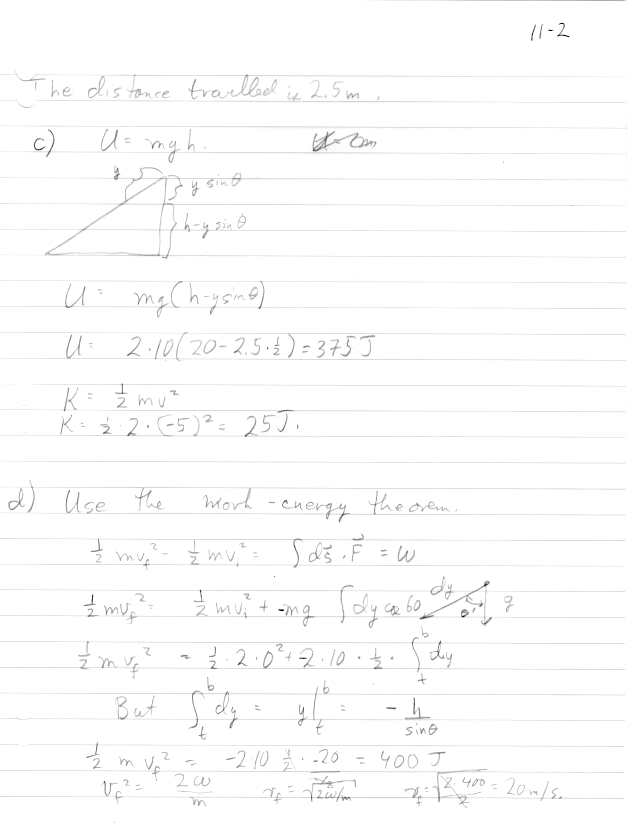 11-2
The distance travlled is 2.5m.
c) U = mgh.
y
y sinθ
h-y sinθ
U = mg(h-ysinθ)
U = 2·10(20-2.5·½) = 375J
K = ½ mv²
K = ½·2·(-5)² = 25J.
d) Use the work-energy theorem.
½ mv_f² - ½ mv_i² = ∫ds⃗·F⃗ = W
½ mv_f² = ½ mv_i² + -mg ∫dy cos 60 dy θ' g
½ mv_f² = ½·2·0² + -2·10·½·∫_t^b dy
But ∫_t^b dy = y|_t^b = - h/sinθ
½ m v_f² = -2 10·½·-20 = 400 J
v_f² = 2W/m v_f = √2W/m v_f = √2·400/2 = 20m/s.